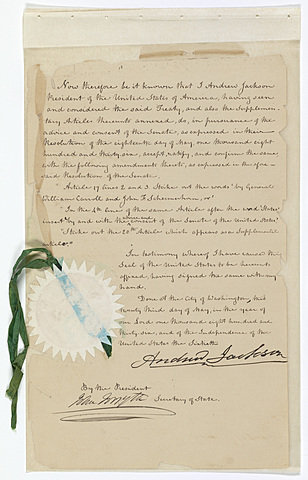 Now therefore be it known that I Andrew Jackson
President of the United States of America, having seen
and considered the said Treaty, and also the Supplemen-
tary Article thereunto annexed, do, in pursuance of the
advice and consent of the Senate, as expressed in their
Resolution of the eighteenth day of May, one thousand eight
hundred and thirty six, accept, ratify, and confirm the same
with the following amendment thereto, as expressed in the afore-
said Resolution of the Senate.
"Article 17 lines 2 and 3 Strike out the words "by General
William Carroll and John F. Schermerhorn, or"
"In the 4th line of the same Article after the word "States,"
insert "by and with the advice and consent of the Senate of the United States"
"Strike out the 20th Article which appears as a Supplemental
article."
In testimony whereof I have caused the
Seal of the United States to be hereunto
affixed, having signed the same with my
hand.
Done at the City of Washington, this
twenty third day of May, in the year of
our Lord one thousand eight hundred and
thirty six, and of the Independence of the
United States the Sixtieth.
Andrew Jackson
By the President
John Forsyth Secretary of State.